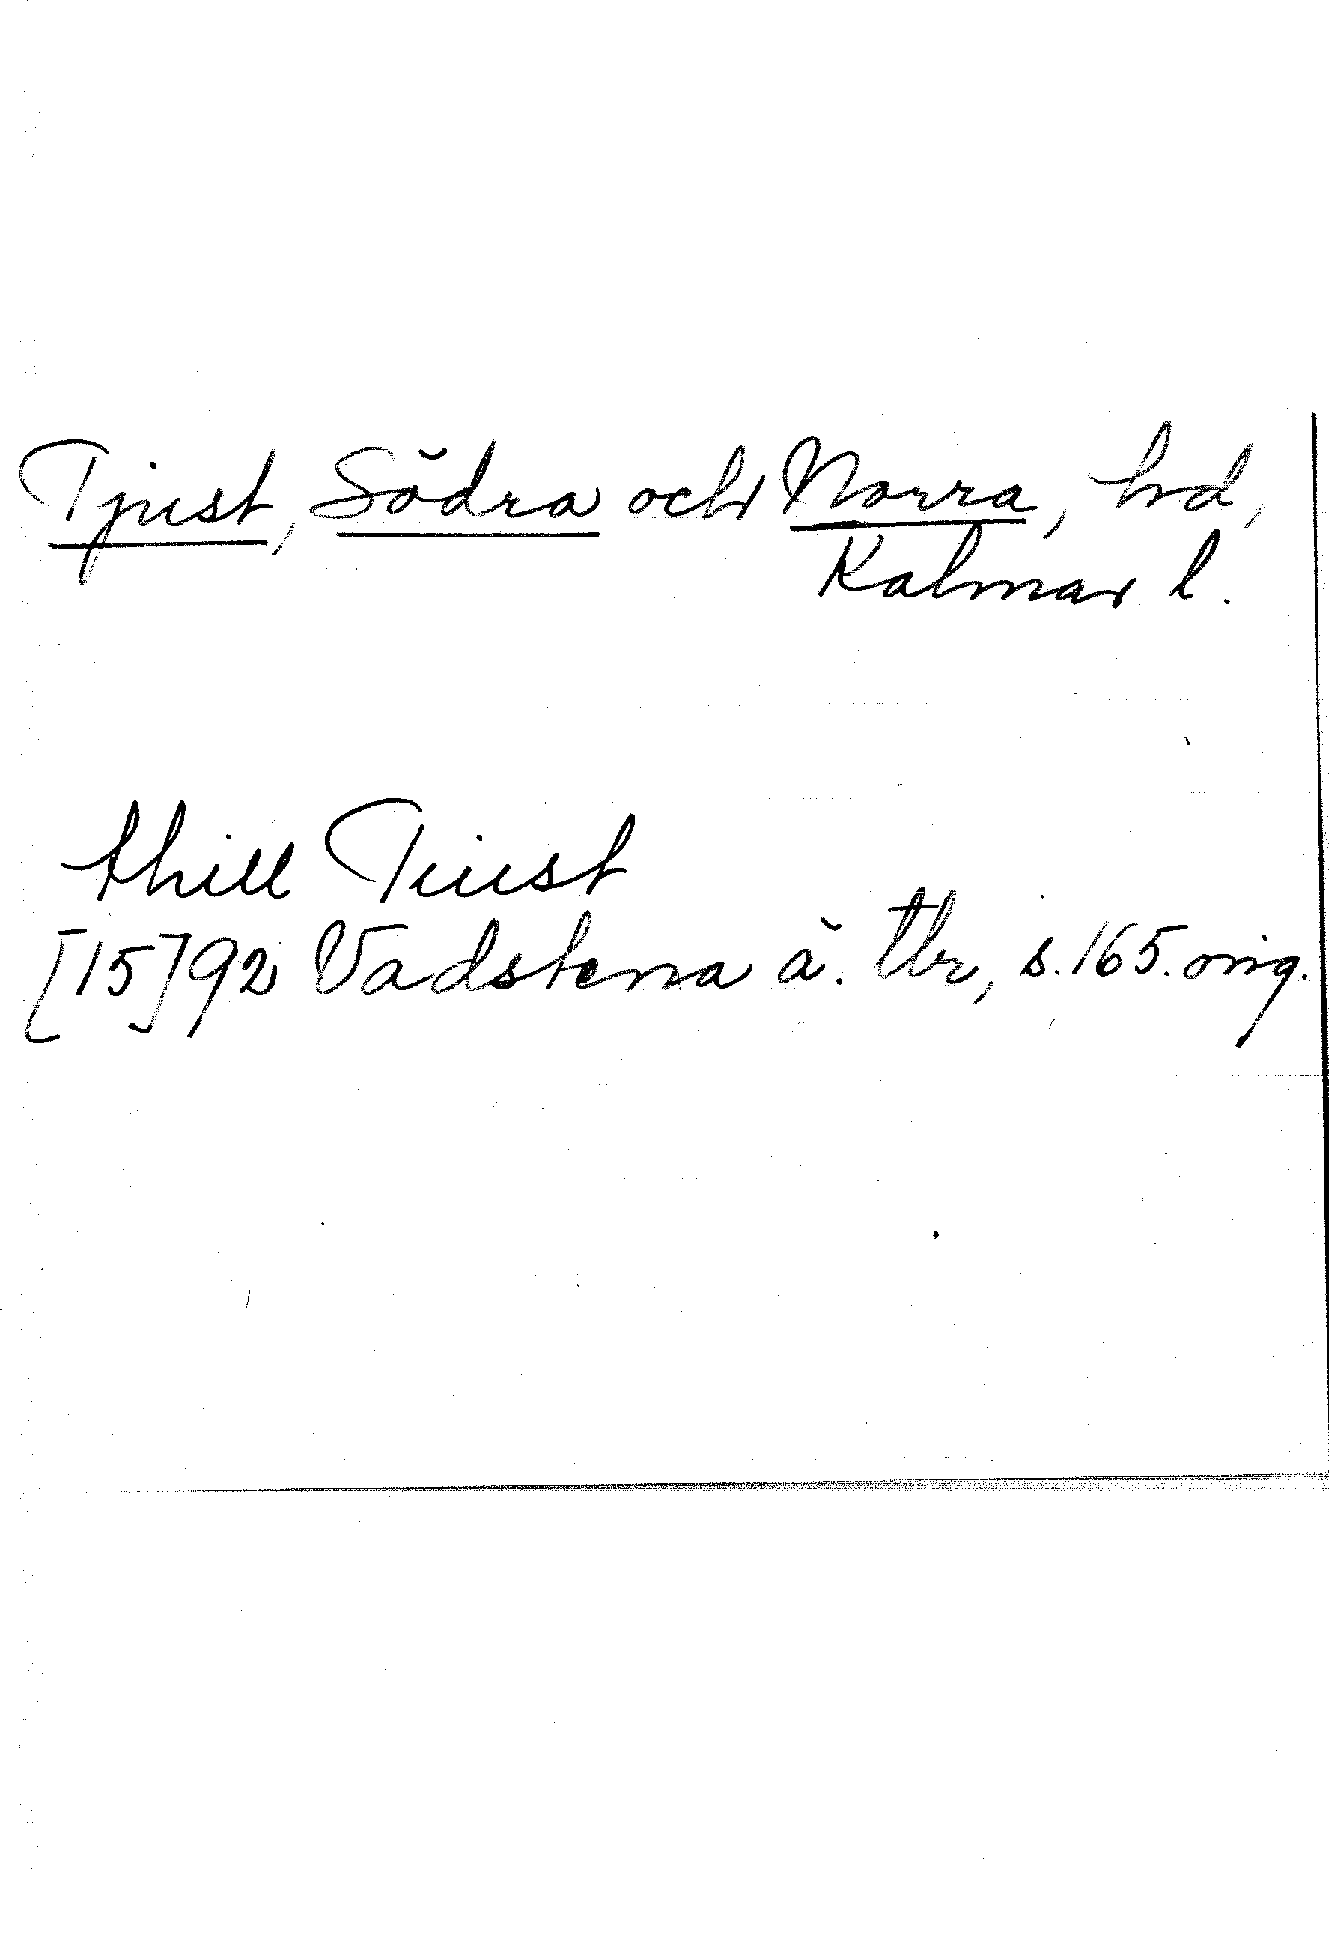 Tjust, Södra och Norra, hd,
Kalmar l.
thill Tiust
[15]92 Vadstena ä. tbr, s. 165. orig.